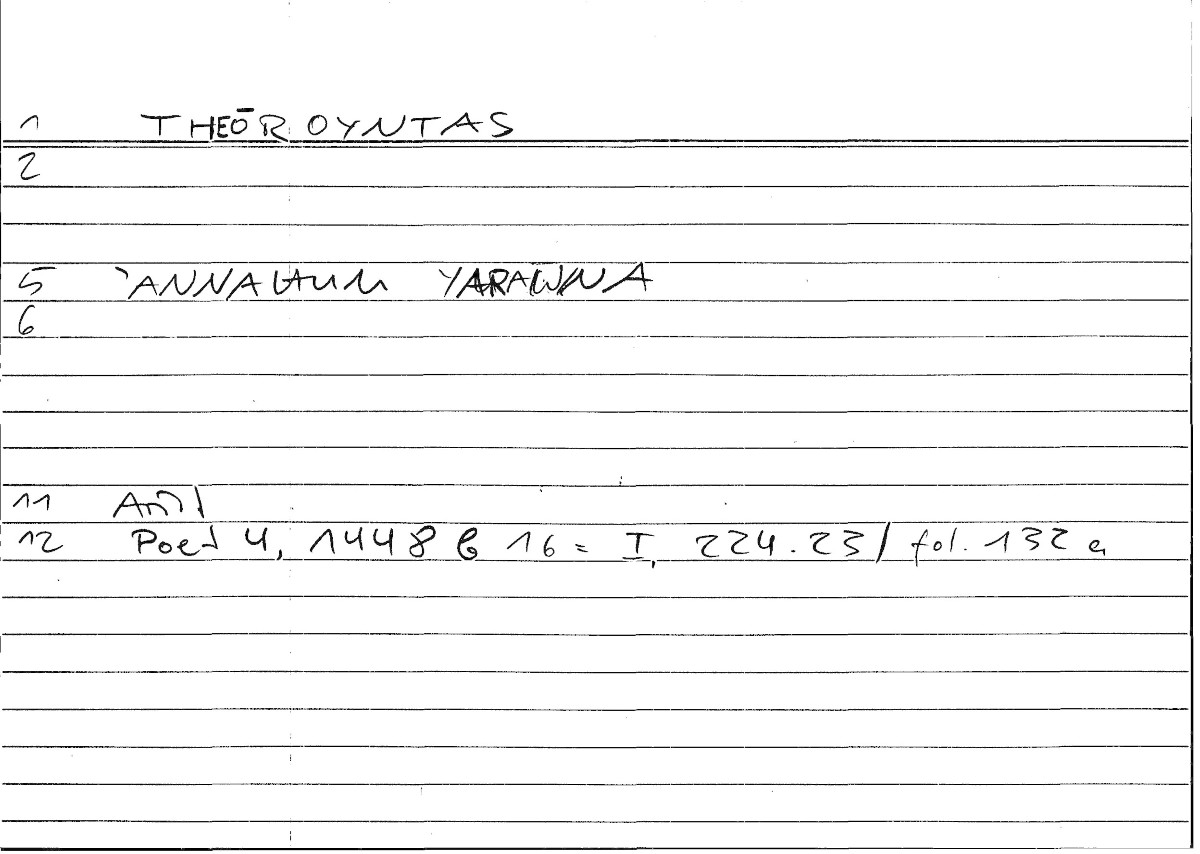 1 THEŌROYNTAS
2
5 'ANNAHUM YARAWNA
6
11
12 Poet 4, 1448 b 16 = I, 224.23 / fol. 132 a